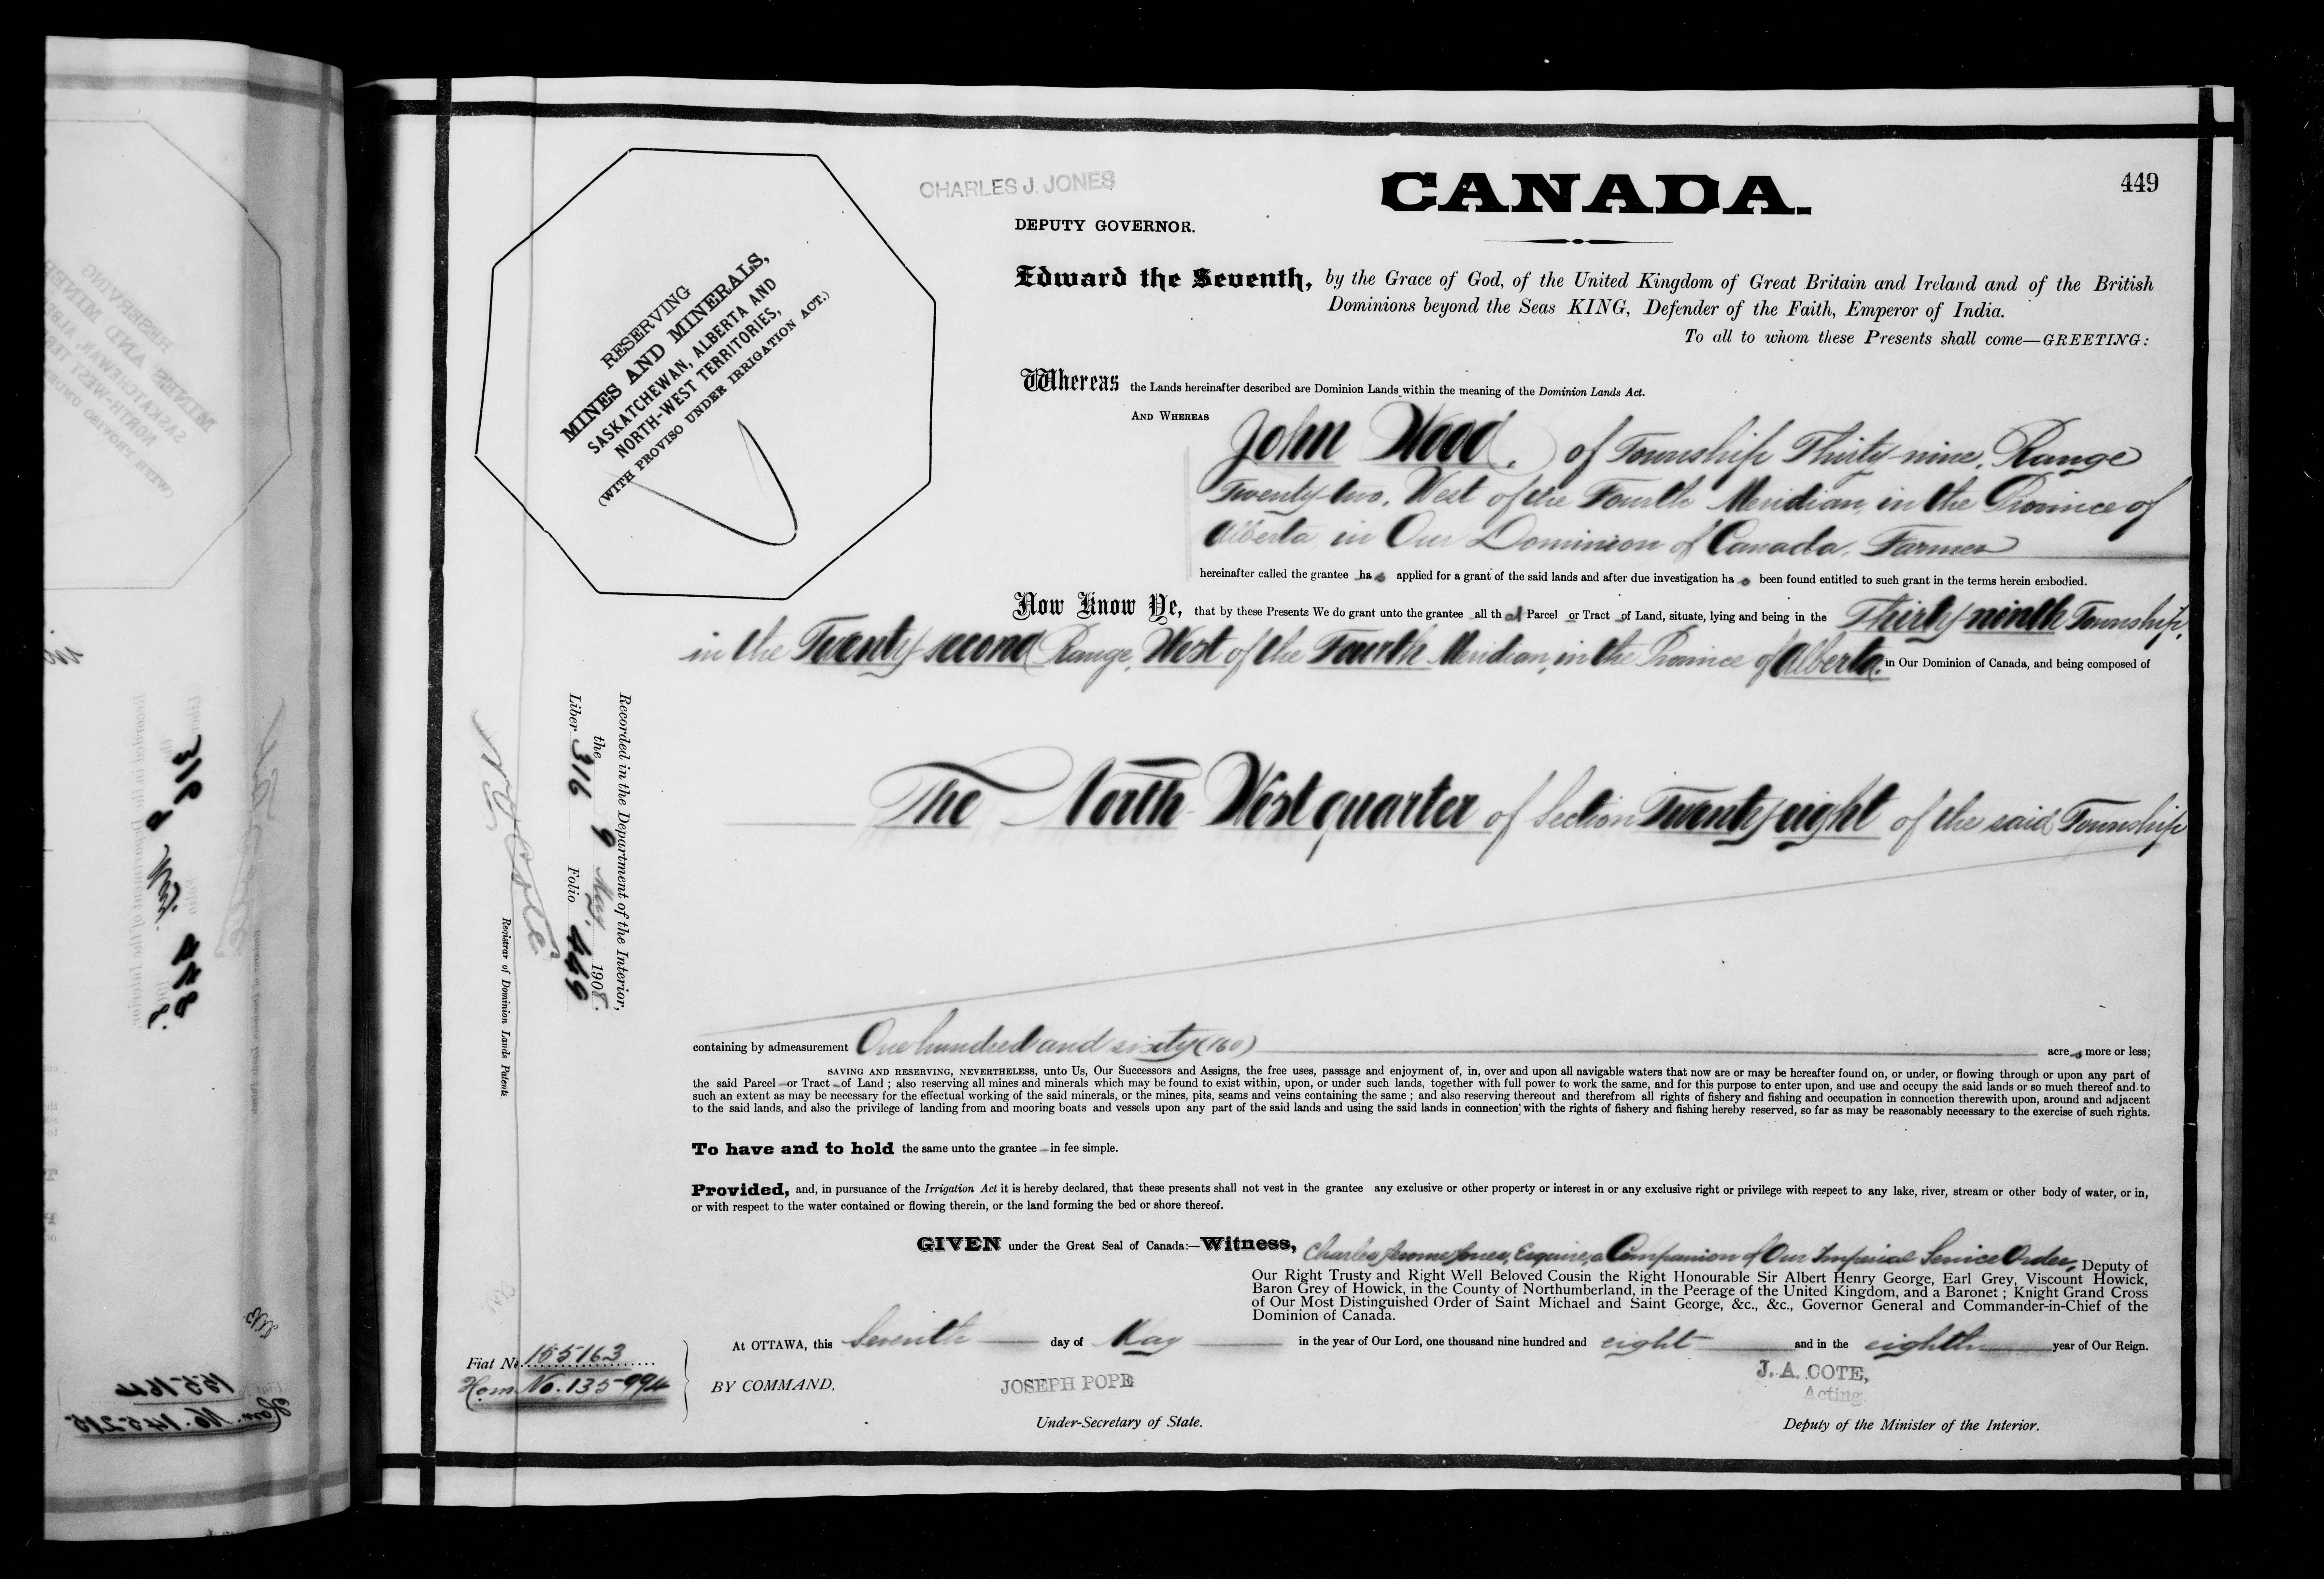 449
CHARLES J. JONES
CANADA.
DEPUTY GOVERNOR.
RESERVING
MINES AND MINERALS,
SASKATCHEWAN, ALBERTA AND
NORTH-WEST TERRITORIES,
(WITH PROVISO UNDER IRRIGATION ACT.)
Edward the Seventh, by the Grace of God, of the United Kingdom of Great Britain and Ireland and of the British
Dominions beyond the Seas KING, Defender of the Faith, Emperor of India.
To all to whom these Presents shall come—GREETING:
Whereas the Lands hereinafter described are Dominion Lands within the meaning of the Dominion Lands Act.
AND WHEREAS John Wood, of Township Thirty-nine, Range
Twenty-two, West of the Fourth Meridian, in the Province of
Alberta, in Our Dominion of Canada, Farmer
hereinafter called the grantee has applied for a grant of the said lands and after due investigation has been found entitled to such grant in the terms herein embodied.
Now Know Ye, that by these Presents We do grant unto the grantee all that Parcel or Tract of Land, situate, lying and being in the Thirty-ninth Township,
in the Twenty-second Range, West of the Fourth Meridian, in the Province of Alberta, in Our Dominion of Canada, and being composed of
The North West quarter of Section Twenty-eight of the said Township
Recorded in the Department of the Interior,
the 9 May 1908.
Liber 316 Folio 449
N. O. Coté
Registrar of Dominion Lands Patents.
containing by admeasurement One hundred and sixty (160) acres more or less;
SAVING AND RESERVING, NEVERTHELESS, unto Us, Our Successors and Assigns, the free uses, passage and enjoyment of, in, over and upon all navigable waters that now are or may be hereafter found on, or under, or flowing through or upon any part of
the said Parcel or Tract of Land ; also reserving all mines and minerals which may be found to exist within, upon, or under such lands, together with full power to work the same, and for this purpose to enter upon, and use and occupy the said lands or so much thereof and to
such an extent as may be necessary for the effectual working of the said minerals, or the mines, pits, seams and veins containing the same ; and also reserving thereout and therefrom all rights of fishery and fishing and occupation in connection therewith upon, around and adjacent
to the said lands, and also the privilege of landing from and mooring boats and vessels upon any part of the said lands and using the said lands in connection with the rights of fishery and fishing hereby reserved, so far as may be reasonably necessary to the exercise of such rights.
To have and to hold the same unto the grantee in fee simple.
Provided, and, in pursuance of the Irrigation Act it is hereby declared, that these presents shall not vest in the grantee any exclusive or other property or interest in or any exclusive right or privilege with respect to any lake, river, stream or other body of water, or in,
or with respect to the water contained or flowing therein, or the land forming the bed or shore thereof.
GIVEN under the Great Seal of Canada:—Witness, Charles Jerome Jones, Esquire, a Companion of Our Imperial Service Order, Deputy of
Our Right Trusty and Right Well Beloved Cousin the Right Honourable Sir Albert Henry George, Earl Grey, Viscount Howick,
Baron Grey of Howick, in the County of Northumberland, in the Peerage of the United Kingdom, and a Baronet ; Knight Grand Cross
of Our Most Distinguished Order of Saint Michael and Saint George, &c., &c., Governor General and Commander-in-Chief of the
Dominion of Canada.
At OTTAWA, this Seventh day of May in the year of Our Lord, one thousand nine hundred and eight and in the eighth year of Our Reign.
Fiat No. 155163
Hom. No. 135994
BY COMMAND,
JOSEPH POPE
Under-Secretary of State.
J. A. COTE,
Acting
Deputy of the Minister of the Interior.